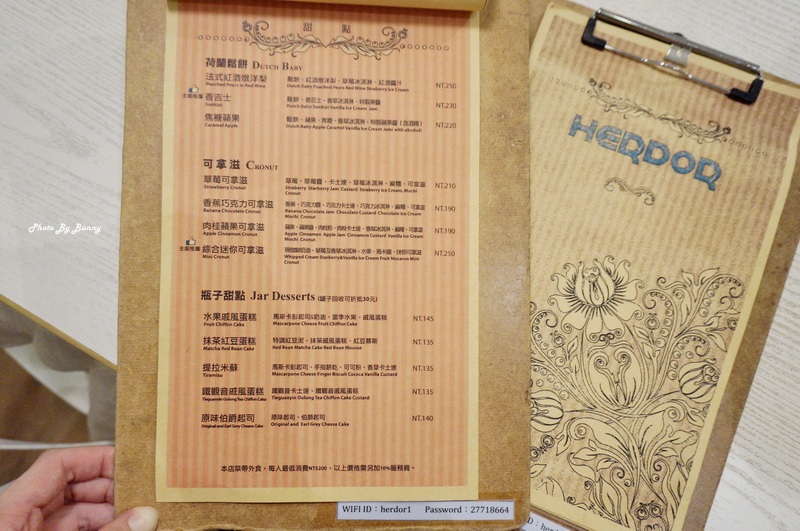 甜 點
荷蘭鬆餅 DUTCH BABY
法式紅酒燉洋梨 鬆餅、紅酒燉洋梨、草莓冰淇淋、紅酒醬汁 NT.250
Poached Pears in Red Wine Dutch Baby Poached Pears Red Wine Straberry Ice Cream
主廚推薦
香吉士 鬆餅、香吉士、香草冰淇淋、特製果醬 NT.230
Sunkist Dutch Baby Sunkist Vanilla Ice Cream Jami
焦糖蘋果 鬆餅、蘋果、焦糖、香草冰淇淋、特製蘋果醬(含酒精) NT.220
Caramel Apple Dutch Baby Apple Caramel Vanilla Ice Cream Jami with alcohol)
可拿滋 CRONUT
草莓可拿滋 草莓、草莓醬、卡士達、草莓冰淇淋、麻糬、可拿滋 NT.210
Strawberry Cronut Straberry Starberry Jam Custard Straberry Ice Cream. Mochi
Cronut
香蕉巧克力可拿滋 香蕉、巧克力醬、巧克力卡士達、巧克力冰淇淋、麻糬、可拿滋 NT.190
Banana Chocolate Cronut Banana Chocolate Jam Chocolate Custard Chocolate Ice Cream
Mochi Cronut
肉桂蘋果可拿滋 蘋果、蘋果醬、肉桂粉、肉桂卡士達、香草冰淇淋、麻糬、可拿滋 NT.190
Apple Cinnamon Cronut Apple Cinnamon Apple Jam Cinnamon Custard Vanilla Ice Cream
Mochi Cronut
主廚推薦
綜合迷你可拿滋 NT.250
Mini Cronut Whipped Cream Starberry&Vanilla Ice Cream Fruit Macaron Mini
Cronut
瓶子甜點 Jar Desserts (罐子回收可折抵30元)
水果戚風蛋糕 馬斯卡彭起司&奶油、當季水果、戚風蛋糕 NT.145
Fruit Chiffon Cake Mascarpone Cheese Fruit Chiffon Cake
抹茶紅豆蛋糕 特調紅豆泥、抹茶戚風蛋糕、紅豆慕斯 NT.135
Matcha Red Bean Cake Red Bean Matcha Cake Red Bean Mousse
提拉米蘇 馬斯卡彭起司、手指餅乾、可可粉、香草卡士達 NT.135
Tiramisu Mascarpone Cheese Finger Biscuit Cococa Vanilla Custard
鐵觀音戚風蛋糕 鐵觀音卡士達、鐵觀音戚風蛋糕 NT.135
Tieguanyin Oolong Tea Chiffon Cake Tieguanyin Oolong Tea Chiffon Cake Custard
原味伯爵起司 原味起司、伯爵起司 NT.140
Original and Earl Grey Cheese Cake Original and Earl Grey Cheese Cake
本店禁帶外食，每人最低消費NT$200，以上價格需另加10%服務費。
WIFI ID：herdor1 Password：27718664
HERDOR
ID：herd
Photo By Bunny